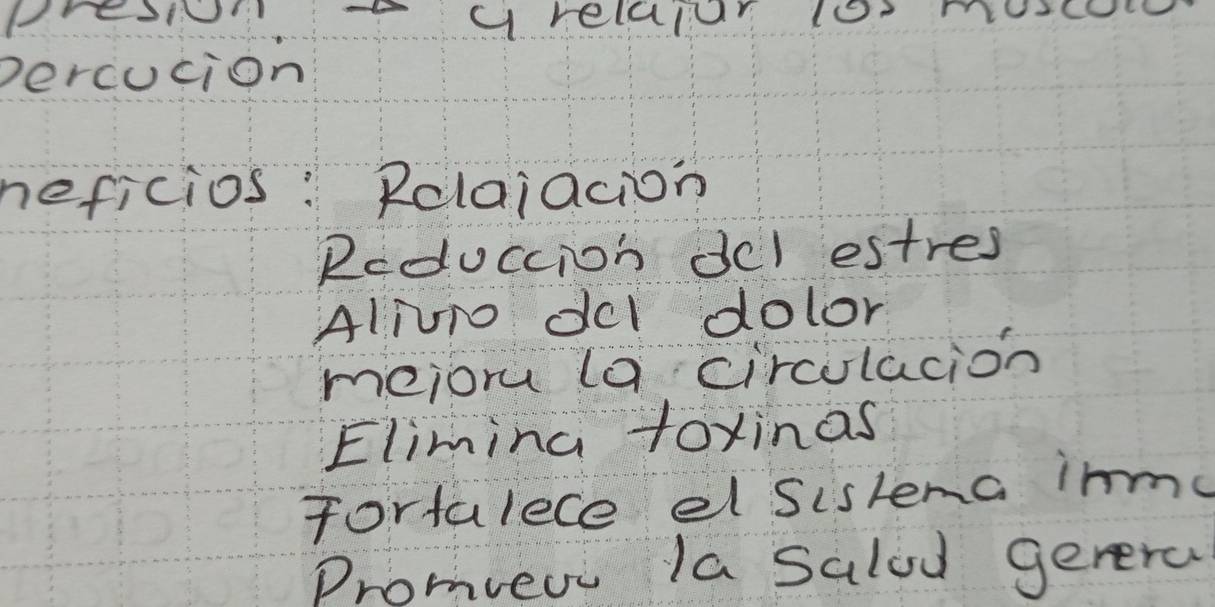 presión → y relajar los musculo
percución
neficios: Relajación
Reducción del estres
Alivio del dolor
mejora la circulación
Elimina toxinas
Fortalece el sistema inm
Promueve la salud genera